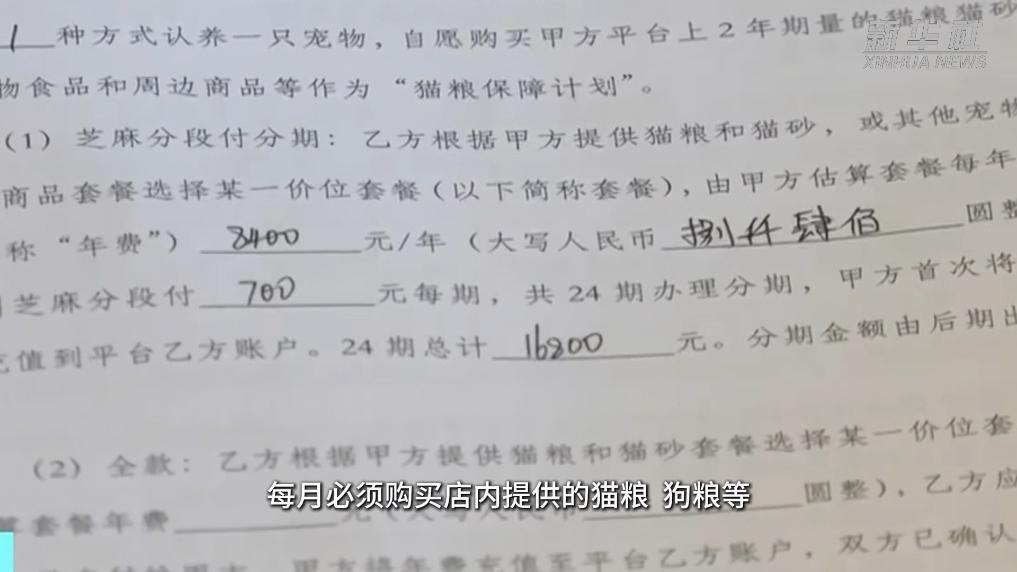 1 种方式认养一只宠物，自愿购买甲方平台上 2 年期量的猫粮猫砂
新华社
XINHUA NEWS
物食品和周边商品等作为“猫粮保障计划”。
(1) 芝麻分段付分期：乙方根据甲方提供猫粮和猫砂，或其他宠物
商品套餐选择某一价位套餐（以下简称套餐），由甲方估算套餐每年
称“年费”） 8400 元/年（大写人民币 捌仟肆佰 圆整
芝麻分段付 700 元每期，共 24 期办理分期，甲方首次将
充值到平台乙方账户。24 期总计 16800 元。分期金额由后期出
(2) 全款：乙方根据甲方提供猫粮和猫砂套餐选择某一价位套
套餐年费 元（大写人民币 圆整），乙方应
甲方将年费充值至平台乙方账户，双方已确认
每月必须购买店内提供的猫粮 狗粮等